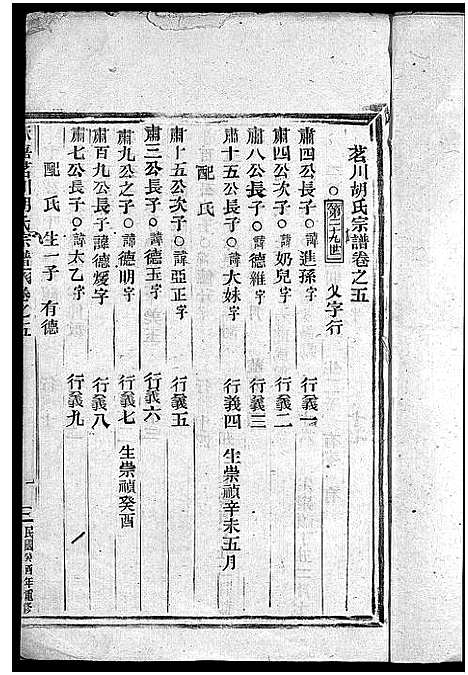 茗川胡氏宗譜卷之五
○第二十九世 乂字行
肅四公長子○諱進孫字 行義一
肅四公次子○諱奶兒字 行義二
肅八公長子○諱德卷字 行義三
肅十五公長子○諱大妹字 行義四 生崇禎辛未五月
配 氏
肅十五公次子○諱亞正字 行義五
肅三公長子○諱德玉字 行義六
肅九公之子○諱德明字 行義七 生崇禎癸酉
肅百九公長子諱德煖字 行義八
肅七公長子○諱太乙字 行義九
配 氏 生一子 有德
茗川胡氏宗譜 卷之五
一 民國癸酉年重修